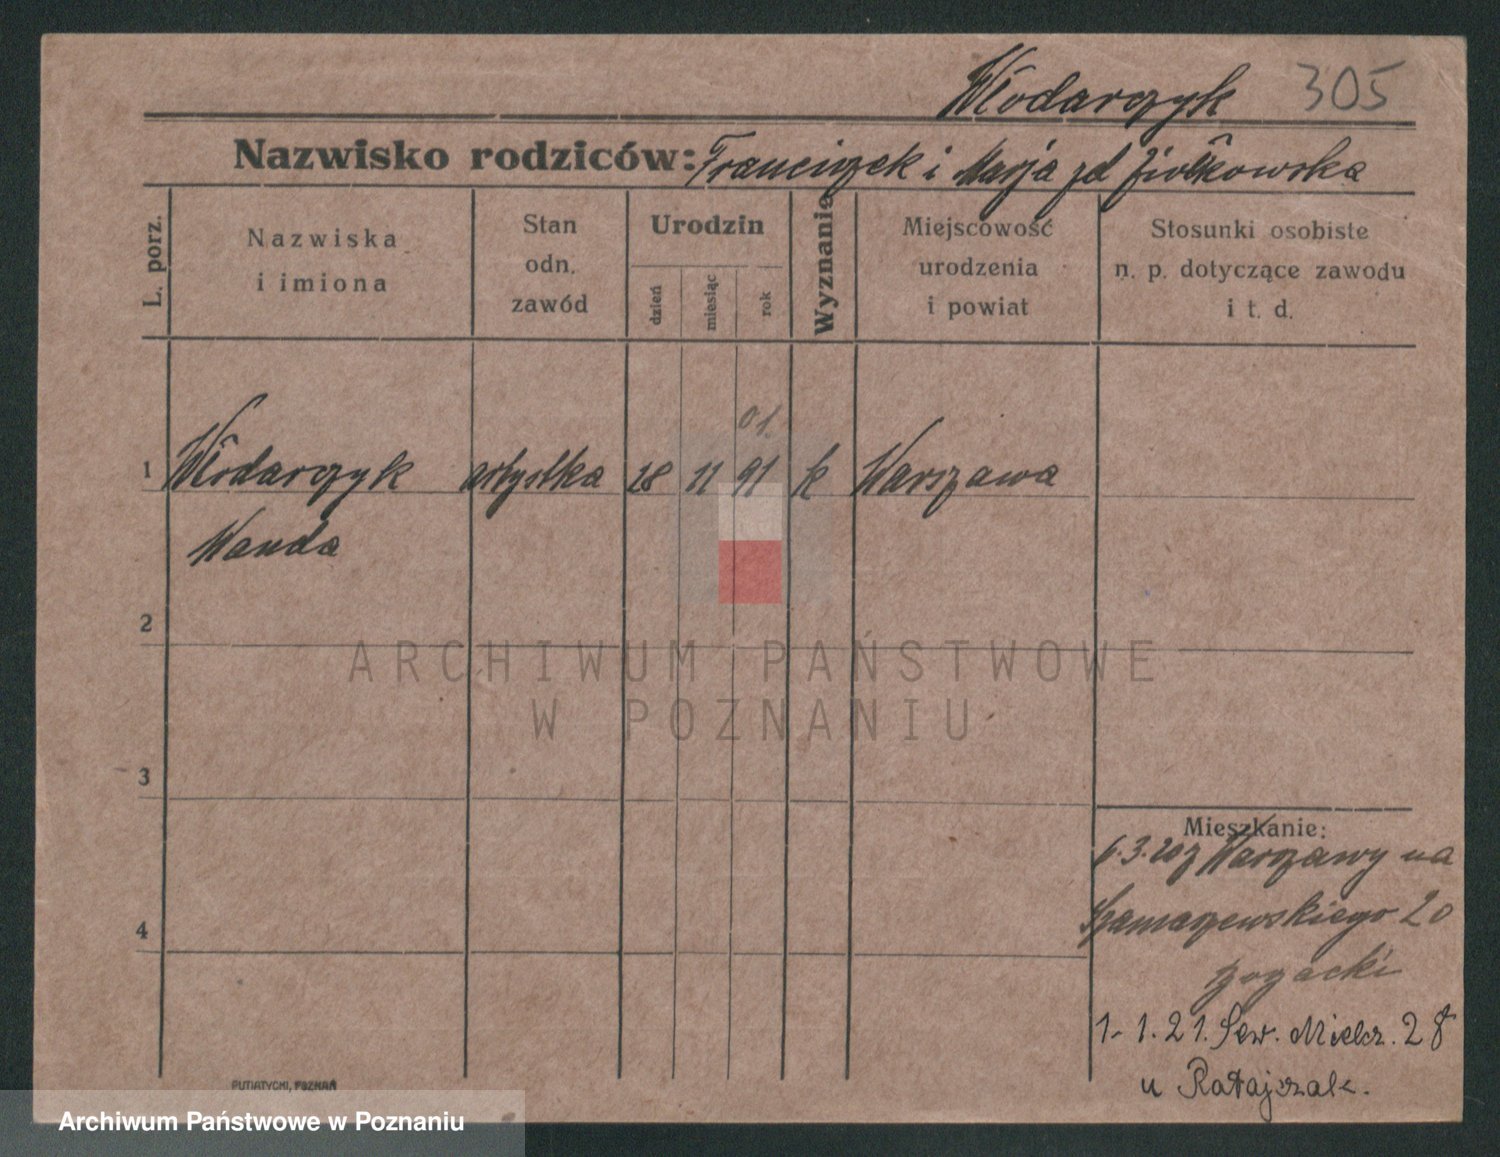 Włodarczyk 305
Nazwisko rodziców: Franciszek i Marja zd Ziółkowska
L. porz.
Nazwiska
i imiona
Stan
odn.
zawód
Urodzin
dzień
miesiąc
rok
Wyznanie
Miejscowość
urodzenia
i powiat
Stosunki osobiste
n. p. dotyczące zawodu
i t. d.
01.
1 Włodarczyk artystka 28 11 91 k Warszawa
Wanda
2
ARCHIWUM PAŃSTWOWE
W POZNANIU
3
Mieszkanie:
6.3.20 z Warszawy na
Szamarzewskiego 20
4
1.1.21. Sew. Mielż. 28
u Ratajczak.
PUTIATYCKI, POZNAŃ
Archiwum Państwowe w Poznaniu